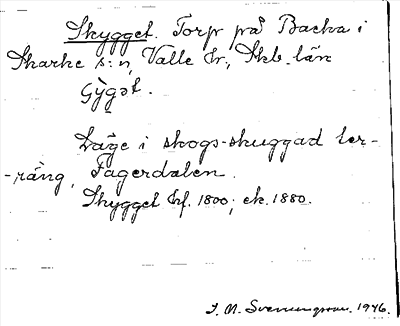 Skygget. Torp på Backa i
Skarke s:n, Valle hr, Skb. län
Läge i skogs-skuggad ter-
-räng, Fagerdalen.
Skygget hf. 1800; ek. 1880.
J. N. Svenungsson. 1946.